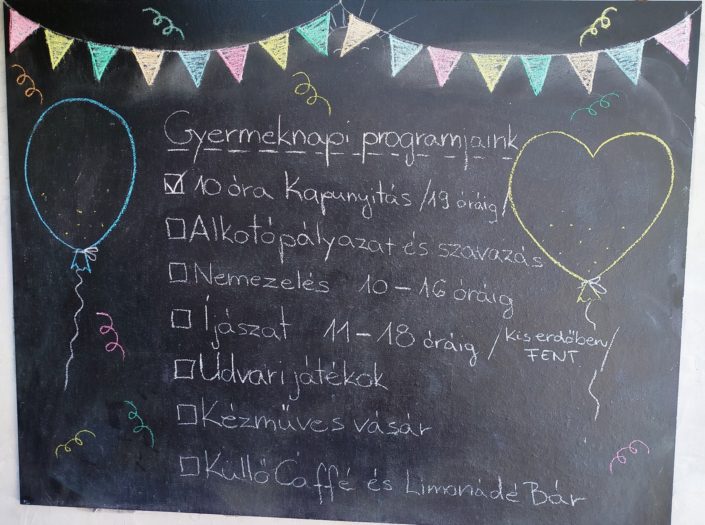 Gyermeknapi programjaink
☑ 10 óra Kapunyitás /19 óráig/
☐ Alkotópályazat és szavazás
☐ Nemezelés 10-16 óráig
☐ Íjászat 11-18 óráig /Kis erdőben/
FENT
☐ Udvari játékok
☐ Kézműves vásár
☐ Küllő Caffé és Limonádé Bár